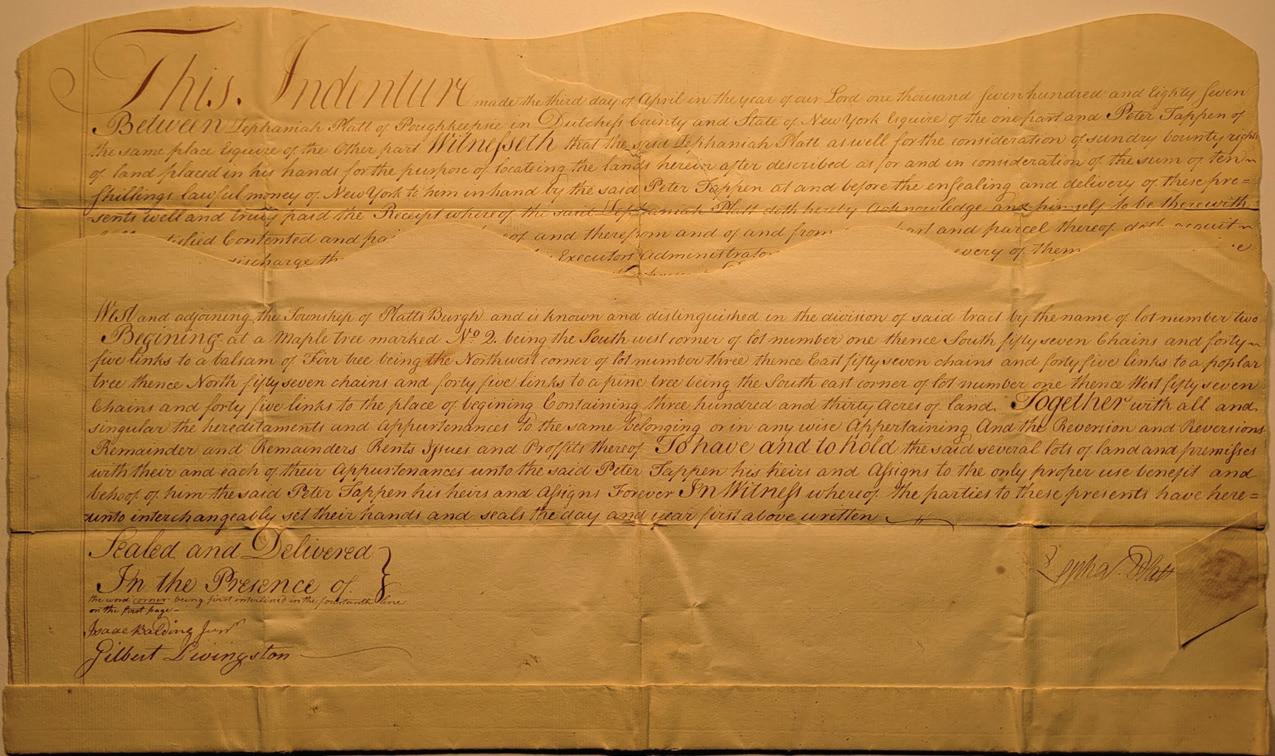 This Indenture made the third day of April in the year of our Lord one thousand Seven hundred and eighty Seven
Between Zephaniah Platt of Poughkeepsie in Dutchess County and State of New York Esquire of the one part and Peter Tappen of
the same place Esquire of the Other part Witnesseth that the said Zephaniah Platt as well for the consideration of sundry bounty rights
of land placed in his hands for the purpose of locateing the lands herein after described as for and in consideration of the sum of ten
Shillings lawful money of New York to him in hand by the said Peter Tappen at and before the ensealing and delivery of these pre=
sents well and truly paid the Receipt whereof the said Zephaniah Platt doth hereby Acknowledge and himself to be therewith
Contented and of and therefrom and of and from and parcel thereof doth acquit
discharge Executors Administrator very of them
West and adjoining the Township of Platts Burgh and is known and distinguished in the division of said tract by the name of lot number two
Begining at a Maple tree marked No 2. being the South west corner of lot number one thence South fifty seven Chains and forty
five links to a balsam of Firr tree being the Northwest corner of lot number three thence East fifty seven chains and forty five links to a poplar
tree thence North fifty seven chains and forty five links to a pine tree being the South east corner of lot number one thence West fifty seven
Chains and forty five links to the place of begining Containing three hundred and thirty Acres of land. Together with all and
singular the hereditaments and Appurtenances To the same belonging or in any wise Appertaining And the Reversion and Reversions
Remainder and Remainders Rents Issues and Proffits thereof To have and to hold the said several lots of land and premisses
with their and each of their Appurtenances unto the said Peter Tappen his heirs and Assigns to the only proper use benefit and
behoof of him the said Peter Tappen his heirs and Assigns Forever In Witness whereof the parties to these presents have here=
unto interchangeably set their hands and seals the day and year first above written
Sealed and Delivered
In the Presence of
the word corner being first interlined in the fourteenth line
on the first page
Isaac Balding Junr
Gilbert Livingston
Zepha. Platt